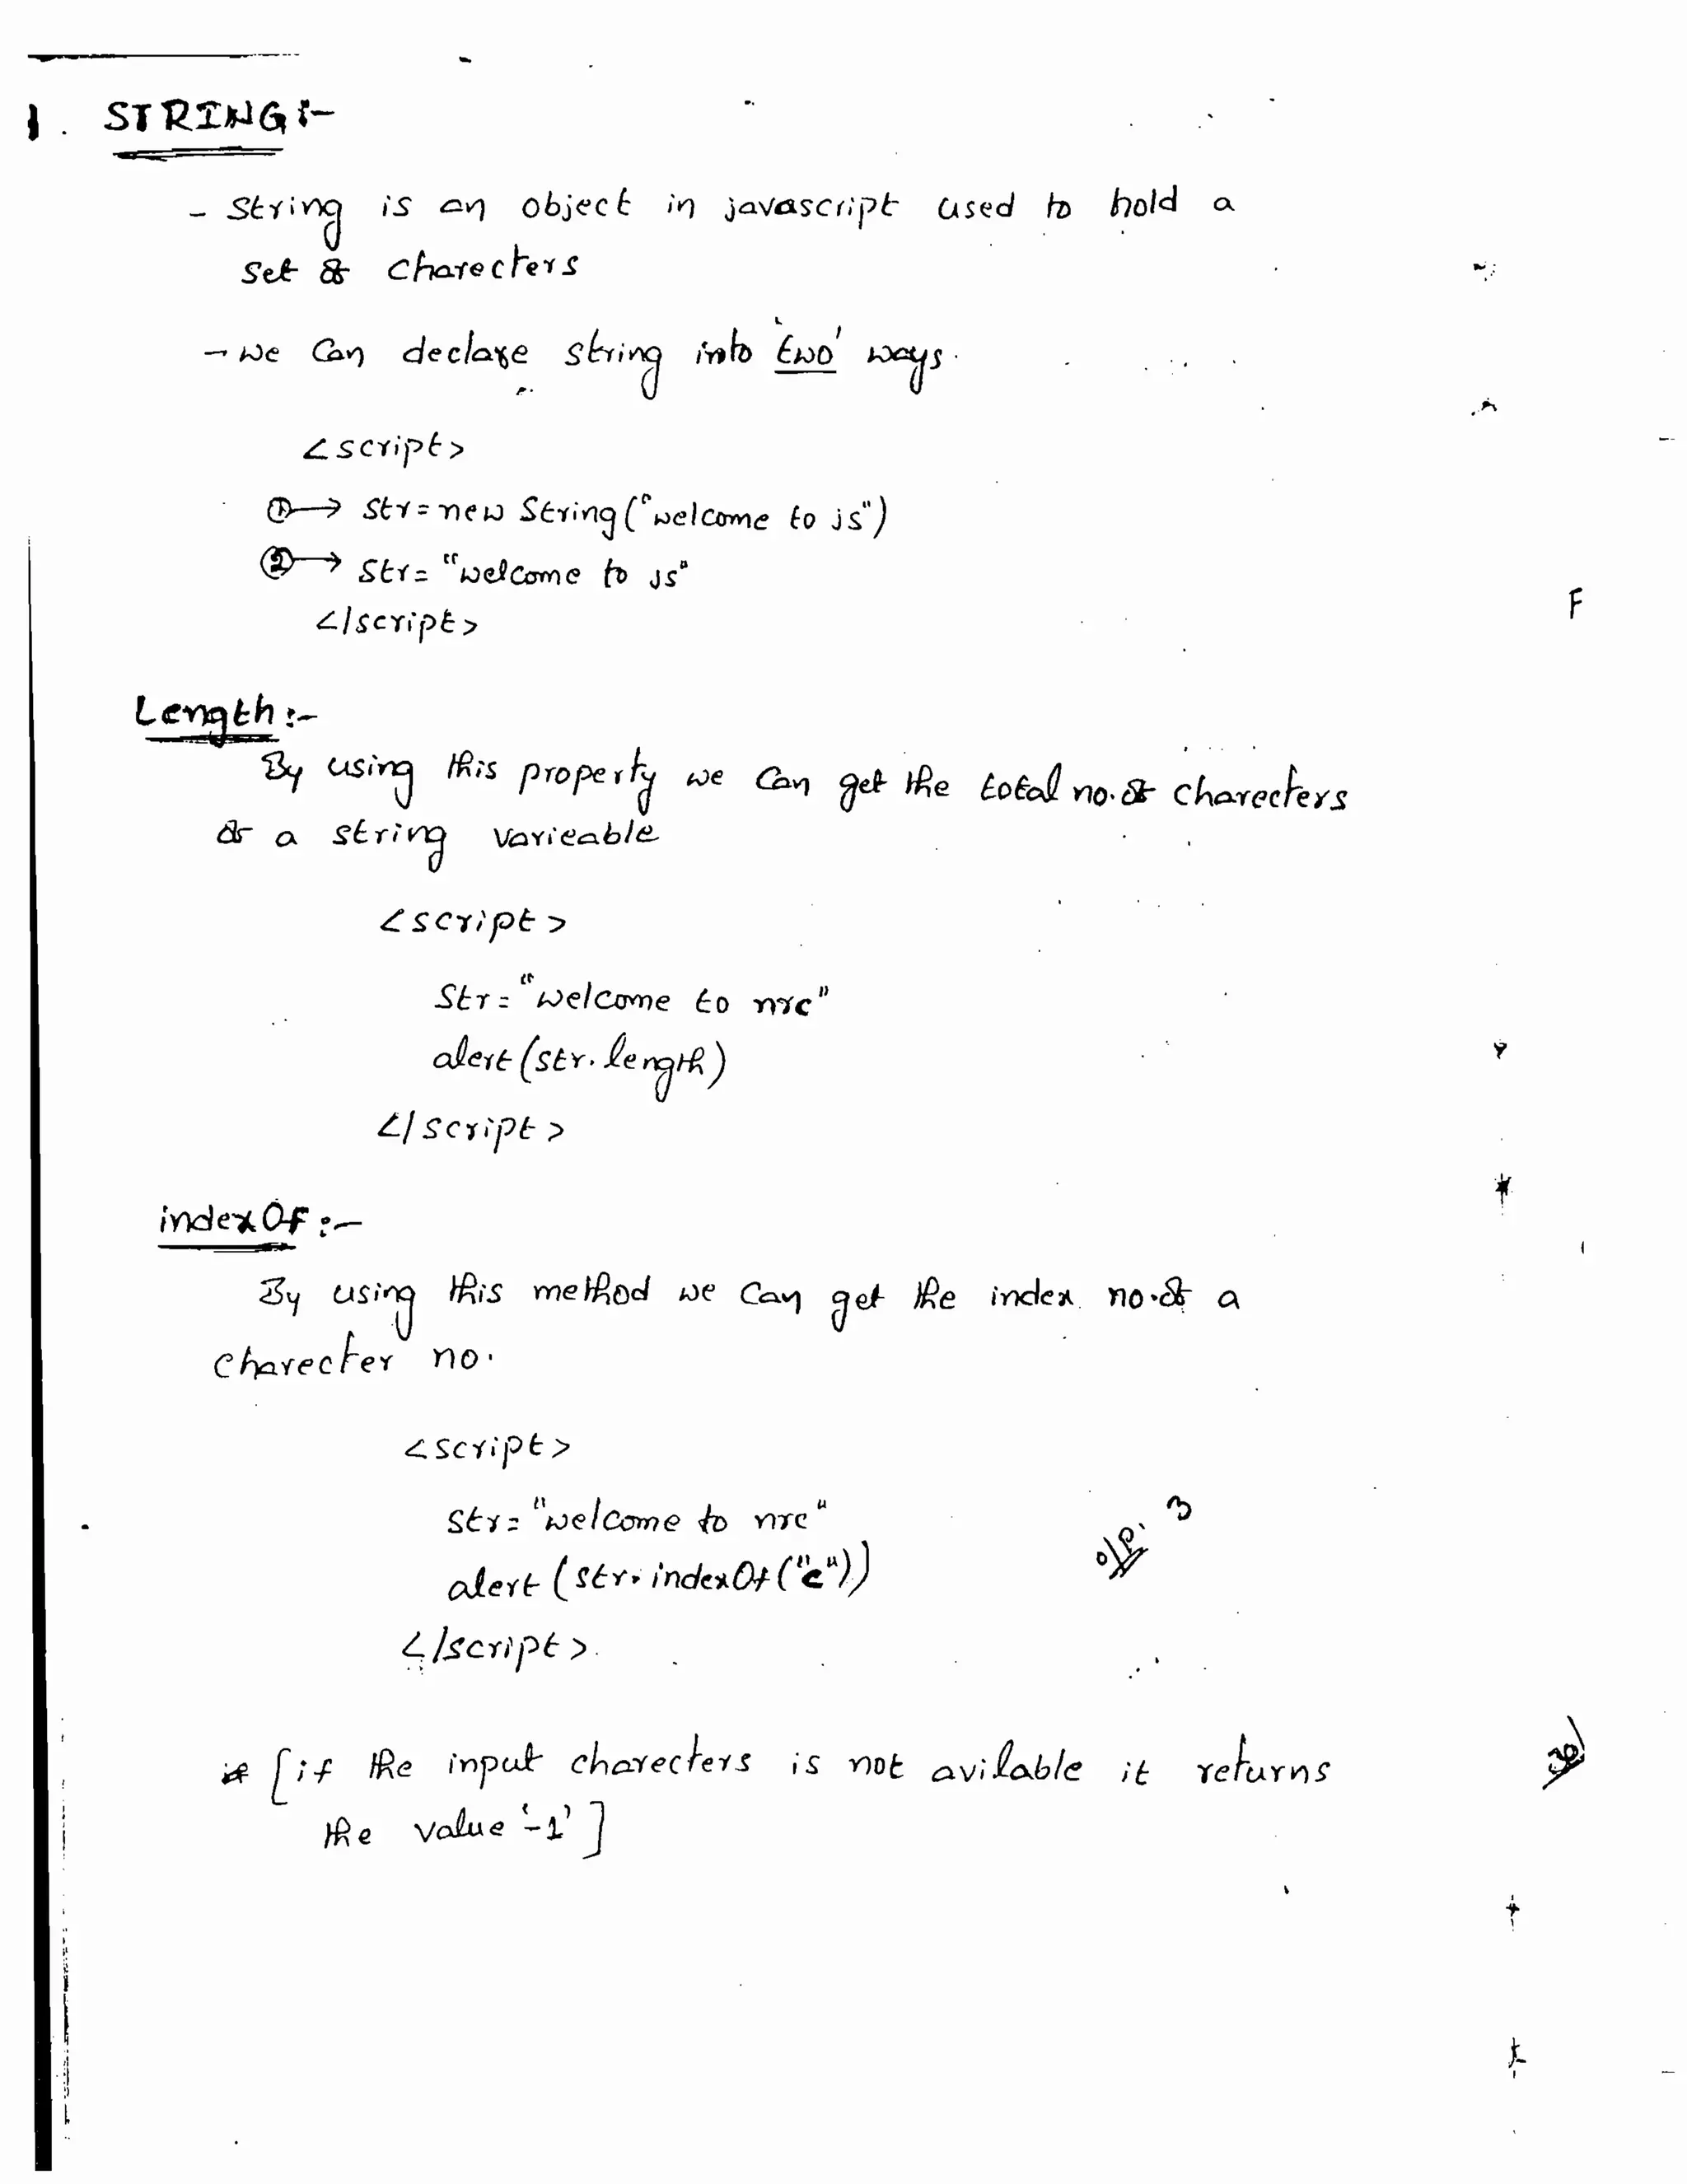 1. STRING:-
- String is an object in javascript used to hold a
set of charecters
- we can declare string into 'two' ways.
<script>
① → str=new String("welcome to js")
② → str= "welcome to js"
</script>
Length:-
By using this property we can get the total no.of charecters
of a string varieable
<script>
Str="welcome to nrc"
alert(str.length)
</script>
indexOf:-
By using this method we can get the index no.of a
charecter no.
<script>
str="welcome to nrc"
alert(str.indexOf("c")) o/p: 3
</script>
* [if the input charecters is not avilable it returns
the value '-1']
30